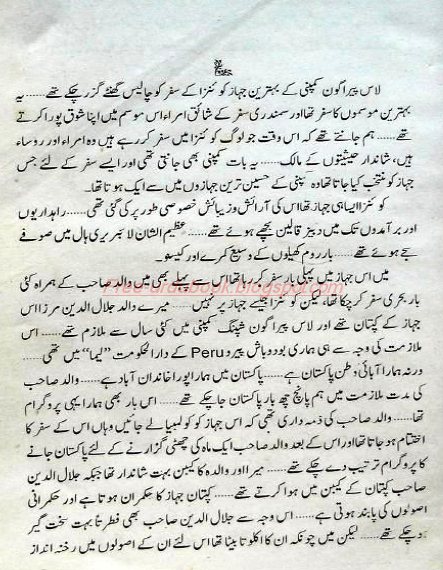 لاس پیراگون کمپنی کے بہترین جہاز کوئنزا کے سفر کو چالیس گھنٹے گزر چکے تھے...... یہ
بہترین موسموں کا سفر تھا اور سمندری سفر کے شائق امراء اس موسم میں اپنا شوق پورا کرتے
تھے...... ہم جانتے تھے کہ اس وقت جو لوگ کوئنزا میں سفر کر رہے ہیں وہ امراء اور روساء
ہیں، شاندار حیثیتوں کے مالک...... یہ بات کمپنی بھی جانتی تھی اور ایسے سفر کے لئے جس
جہاز کو منتخب کیا جاتا تھا وہ کمپنی کے حسین ترین جہازوں میں سے ایک ہوتا تھا۔
کوئنزا ایسا ہی جہاز تھا اس کی آرائش و زیبائش خصوصی طور پر کی گئی تھی...... راہداریوں
اور برآمدوں تک میں دبیز قالین بچھے ہوئے تھے...... عظیم الشان لائبریری ہال میں صوفے
سجے ہوئے تھے...... بار روم کھیلوں کے وسیع کمرے اور کیسنو۔
میں اس جہاز میں پہلی بار سفر کر رہا تھا اس سے پہلے بھی میں والد صاحب کے ہمراہ کئی
بار بحری سفر کر چکا تھا، لیکن کوئنزا جیسے جہاز پر نہیں...... میرے والد جلال الدین مرزا اس
جہاز کے کپتان تھے اور لاس پیراگون شپنگ کمپنی میں کئی سال سے ملازم تھے...... اس
ملازمت کی وجہ سے ہی ہماری بودوباش پیرو Peru کے دارالحکومت ”لیما“ میں تھی......
ورنہ ہمارا آبائی وطن پاکستان ہے...... پاکستان میں ہمارا پورا خاندان آباد ہے...... والد صاحب
کی مدت ملازمت میں ہم پانچ چھ بار پاکستان جا چکے تھے...... اس بار بھی ہمارا یہی پروگرام
تھا...... والد صاحب کی ذمہ داری تھی کہ اس جہاز کو کولمبیا لے جائیں وہاں اس کے سفر کا
اختتام ہو جاتا تھا اور اس کے بعد والد صاحب ایک ماہ کی چھٹی گزارنے کے لئے پاکستان جانے
کا پروگرام ترتیب دے چکے تھے...... میرا اور والدہ کا کیبن بہت شاندار تھا جبکہ جلال الدین
صاحب کپتان کے کیبن میں ہوا کرتے تھے...... کپتان جہاز کا حکمران ہوتا ہے اور حکمرانی
اصولوں کی پابند ہوتی ہے...... اس وجہ سے جلال الدین صاحب بھی فطرتاً بہت سخت گیر
ہو چکے تھے...... لیکن میں چونکہ ان کا اکلوتا بیٹا تھا اس لئے ان کے اصولوں میں رخنہ انداز